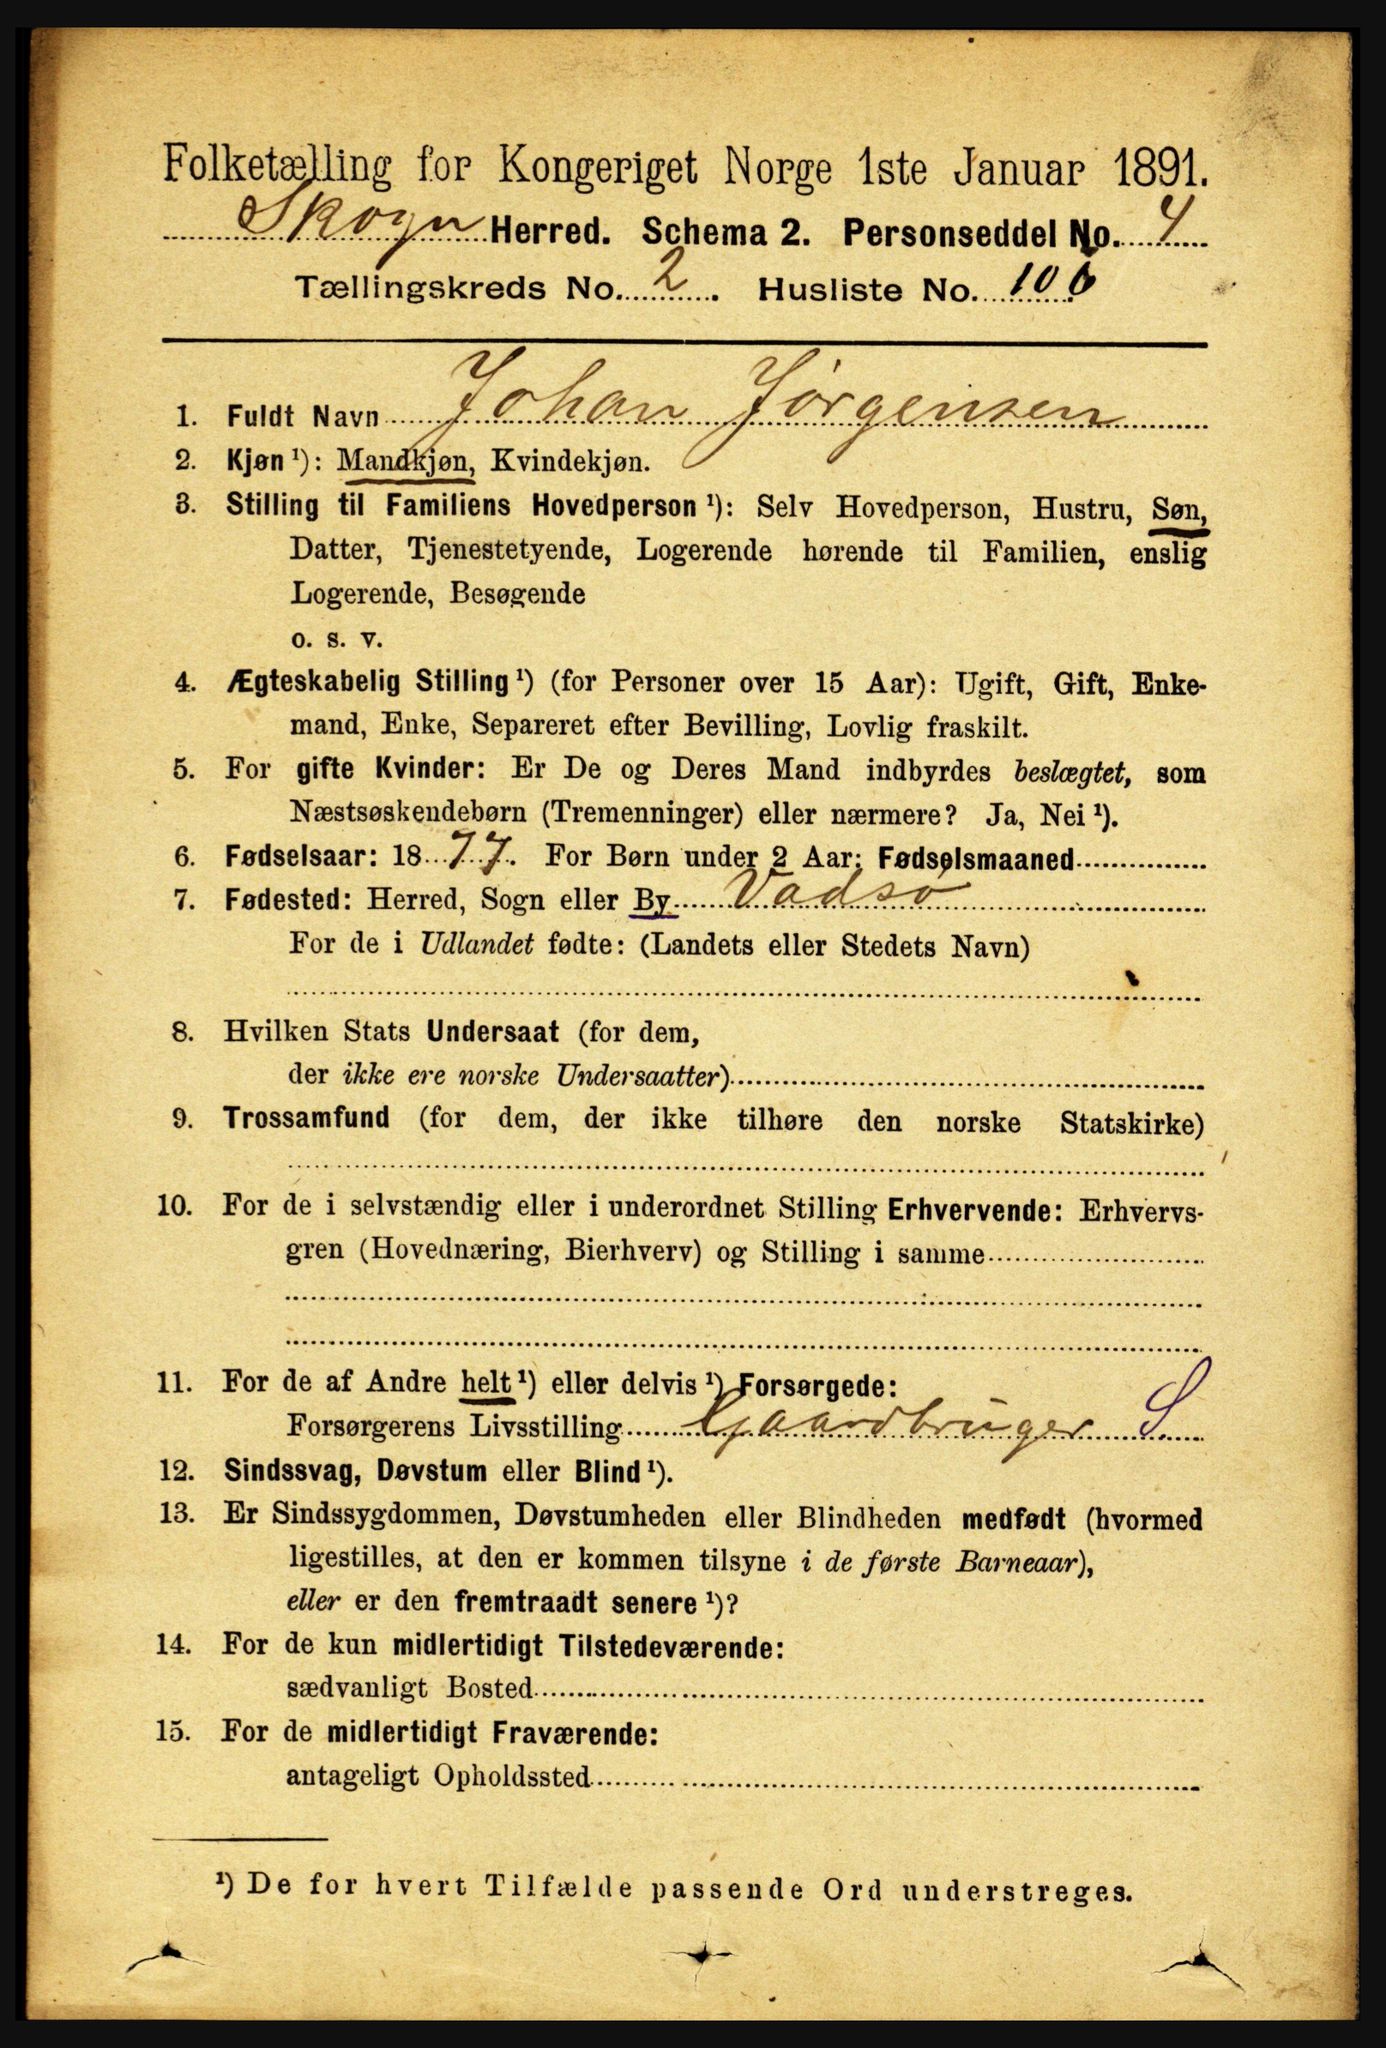 Folketælling for Kongeriget Norge 1ste Januar 1891.
Skogn Herred. Schema 2. Personseddel No. 4
Tællingskreds No. 2. Husliste No. 106
1. Fuldt Navn Johan Jørgensen
2. Kjøn ¹): Mandkjøn, Kvindekjøn.
3. Stilling til Familiens Hovedperson ¹): Selv Hovedperson, Hustru, Søn,
Datter, Tjenestetyende, Logerende hørende til Familien, enslig
Logerende, Besøgende
o. s. v.
4. Ægteskabelig Stilling ¹) (for Personer over 15 Aar): Ugift, Gift, Enke-
mand, Enke, Separeret efter Bevilling, Lovlig fraskilt.
5. For gifte Kvinder: Er De og Deres Mand indbyrdes beslægtet, som
Næstsøskendebørn (Tremenninger) eller nærmere? Ja, Nei ¹).
6. Fødselsaar: 1877. For Børn under 2 Aar: Fødselsmaaned
7. Fødested: Herred, Sogn eller By Vadsø
For de i Udlandet fødte: (Landets eller Stedets Navn)
8. Hvilken Stats Undersaat (for dem,
der ikke ere norske Undersaatter)
9. Trossamfund (for dem, der ikke tilhøre den norske Statskirke)
10. For de i selvstændig eller i underordnet Stilling Erhvervende: Erhvervs-
gren (Hovednæring, Bierhverv) og Stilling i samme
11. For de af Andre helt ¹) eller delvis ¹) Forsørgede:
Forsørgerens Livsstilling Gaardbruger S.
12. Sindssvag, Døvstum eller Blind ¹).
13. Er Sindssygdommen, Døvstumheden eller Blindheden medfødt (hvormed
ligestilles, at den er kommen tilsyne i de første Barneaar),
eller er den fremtraadt senere ¹)?
14. For de kun midlertidigt Tilstedeværende:
sædvanligt Bosted
15. For de midlertidigt Fraværende:
antageligt Opholdssted
¹) De for hvert Tilfælde passende Ord understreges.